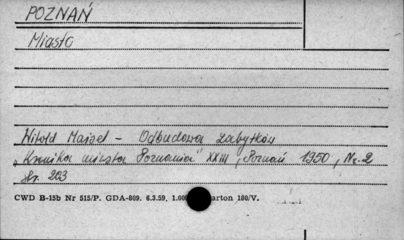 POZNAŃ
Miasto
Witold Maisel - Odbudowa zabytków
„Kronika miasta Poznania" XXIII, Poznań 1950, Nr. 2
str. 203
CWD B-15b Nr 515/P. GDA-809. 6.3.59. 1.00 arton 180/V.